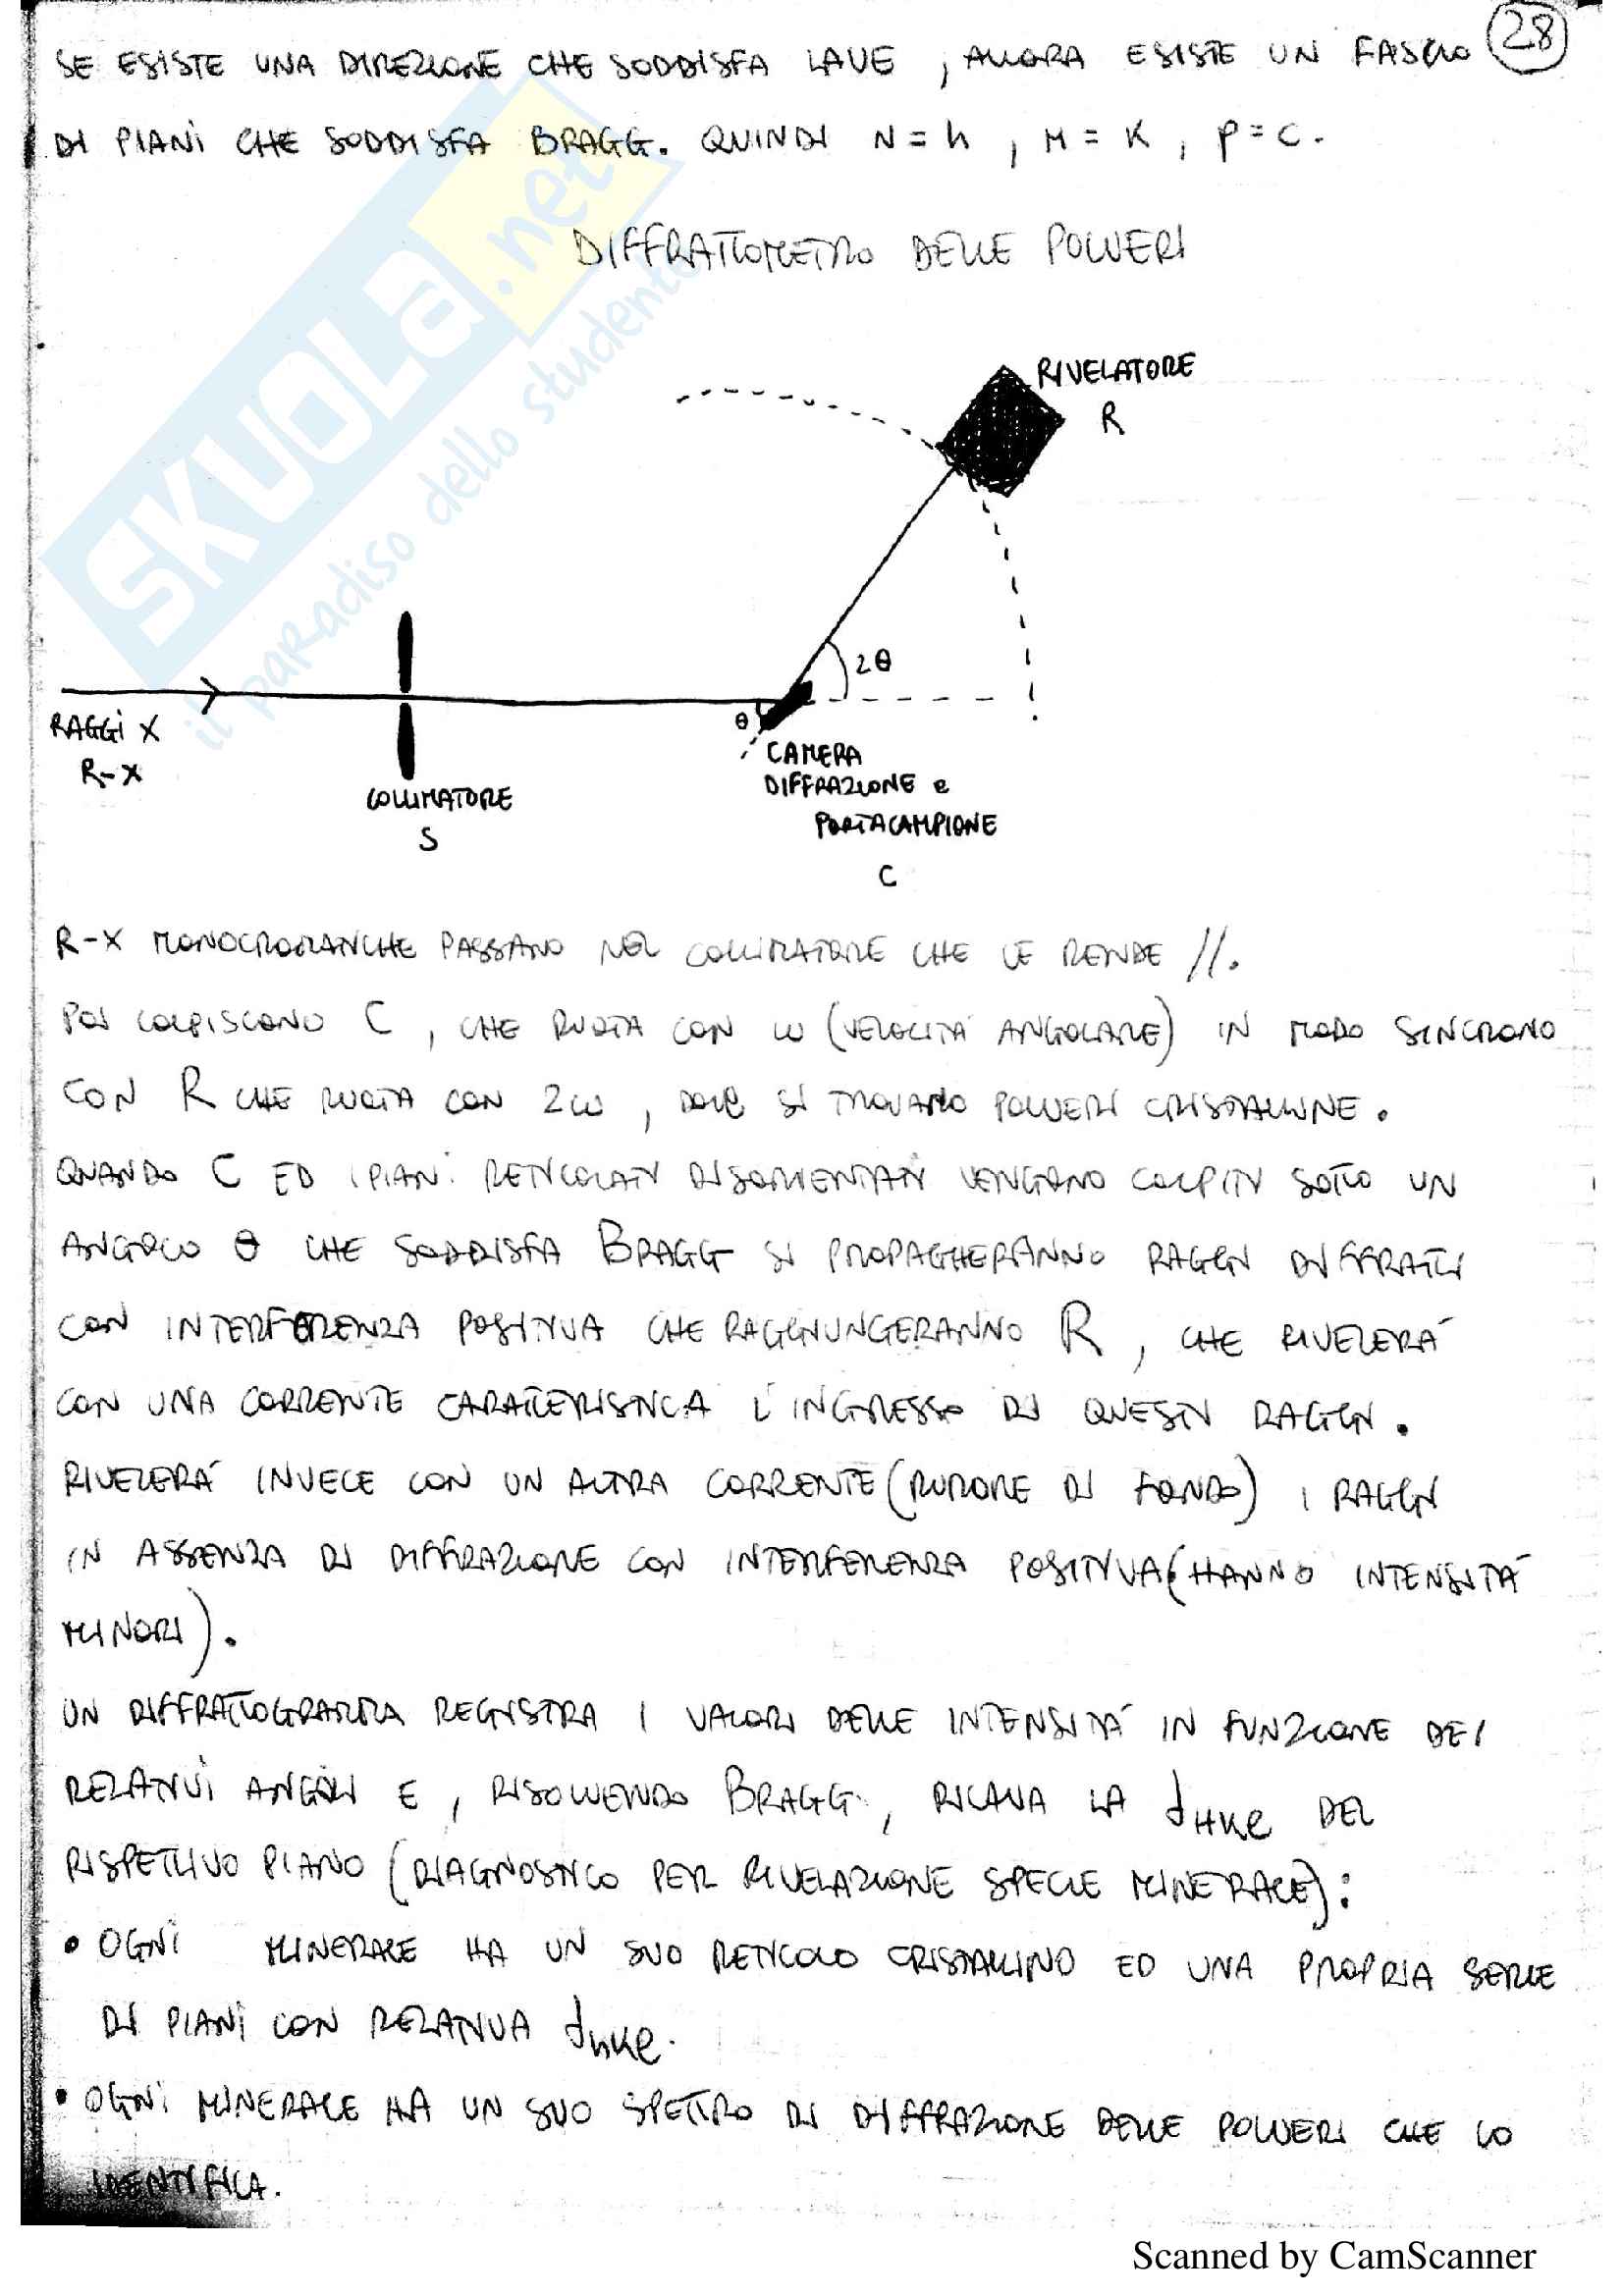 28
SE ESISTE UNA DIREZIONE CHE SODDISFA LAUE, ALLORA ESISTE UN FASCIO
DI PIANI CHE SODDISFA BRAGG. QUINDI N = h, M = K, P = C.
DIFFRATTOMETRO DELLE POLVERI
RIVELATORE
R
2θ
θ
RAGGI X
R-X
COLLIMATORE
S
CAMERA
DIFFRAZIONE e
PORTACAMPIONE
C
R-X MONOCROMATICHE PASSANO NEL COLLIMATORE CHE LE RENDE //.
POI COLPISCONO C, CHE RUOTA CON ω (VELOCITÀ ANGOLARE) IN MODO SINCRONO
CON R CHE RUOTA CON 2ω, DOVE SI TROVANO POLVERI CRISTALLINE.
QUANDO C ED I PIANI RETICOLATI DISORIENTATI VENGONO COLPITI SOTTO UN
ANGOLO θ CHE SODDISFA BRAGG SI PROPAGHERANNO RAGGI DIFFRATTI
CON INTERFERENZA POSITIVA CHE RAGGIUNGERANNO R, CHE RIVELERÀ
CON UNA CORRENTE CARATTERISTICA L'INGRESSO DI QUESTI RAGGI.
RIVELERÀ INVECE CON UN ALTRA CORRENTE (RUMORE DI FONDO) I RAGGI
IN ASSENZA DI DIFFRAZIONE CON INTERFERENZA POSITIVA (HANNO INTENSITÀ
MINORI).
UN DIFFRATTOGRAMMA REGISTRA I VALORI DELLE INTENSITÀ IN FUNZIONE DEI
RELATIVI ANGOLI E, RISOLVENDO BRAGG, RICAVA LA dHKl DEL
RISPETTIVO PIANO (DIAGNOSTICO PER RIVELAZIONE SPECIE MINERALE):
• OGNI MINERALE HA UN SUO RETICOLO CRISTALLINO ED UNA PROPRIA SERIE
DI PIANI CON RELATIVA dhKl.
• OGNI MINERALE HA UN SUO SPETTRO DI DIFFRAZIONE DELLE POLVERI CHE LO
IDENTIFICA.
SKUOLA.net
il paradiso dello studente
Scanned by CamScanner